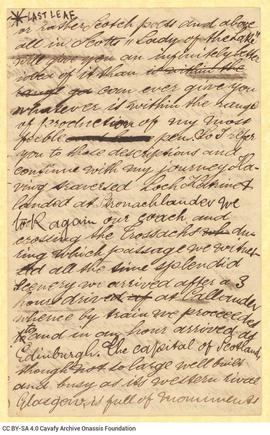 *LAST LEAF
or rather Scotch poets and above
all in Scott's "Lady of the Lake"
will give you an infinitely better
idea of it than
can ever give you
whatever is within the range
of production of my most
feeble pen. So I refer
you to those descriptions and
continue with my journey. Ha-
ving traversed Loch Katrine &
landed at Stronachlander we
took again our coach and
crossing the Trossachs du-
ring which passage we witnes-
sed all the time splendid
scenery we arrived after a 3
hours drive at Callander
whence by train we proceeded
to and in an hour arrived at
Edinburgh. The capital of Scotland,
though not so large well built
and busy as its western rival
Glasgow is full of monuments
CC BY-SA 4.0 Cavafy Archive Onassis Foundation